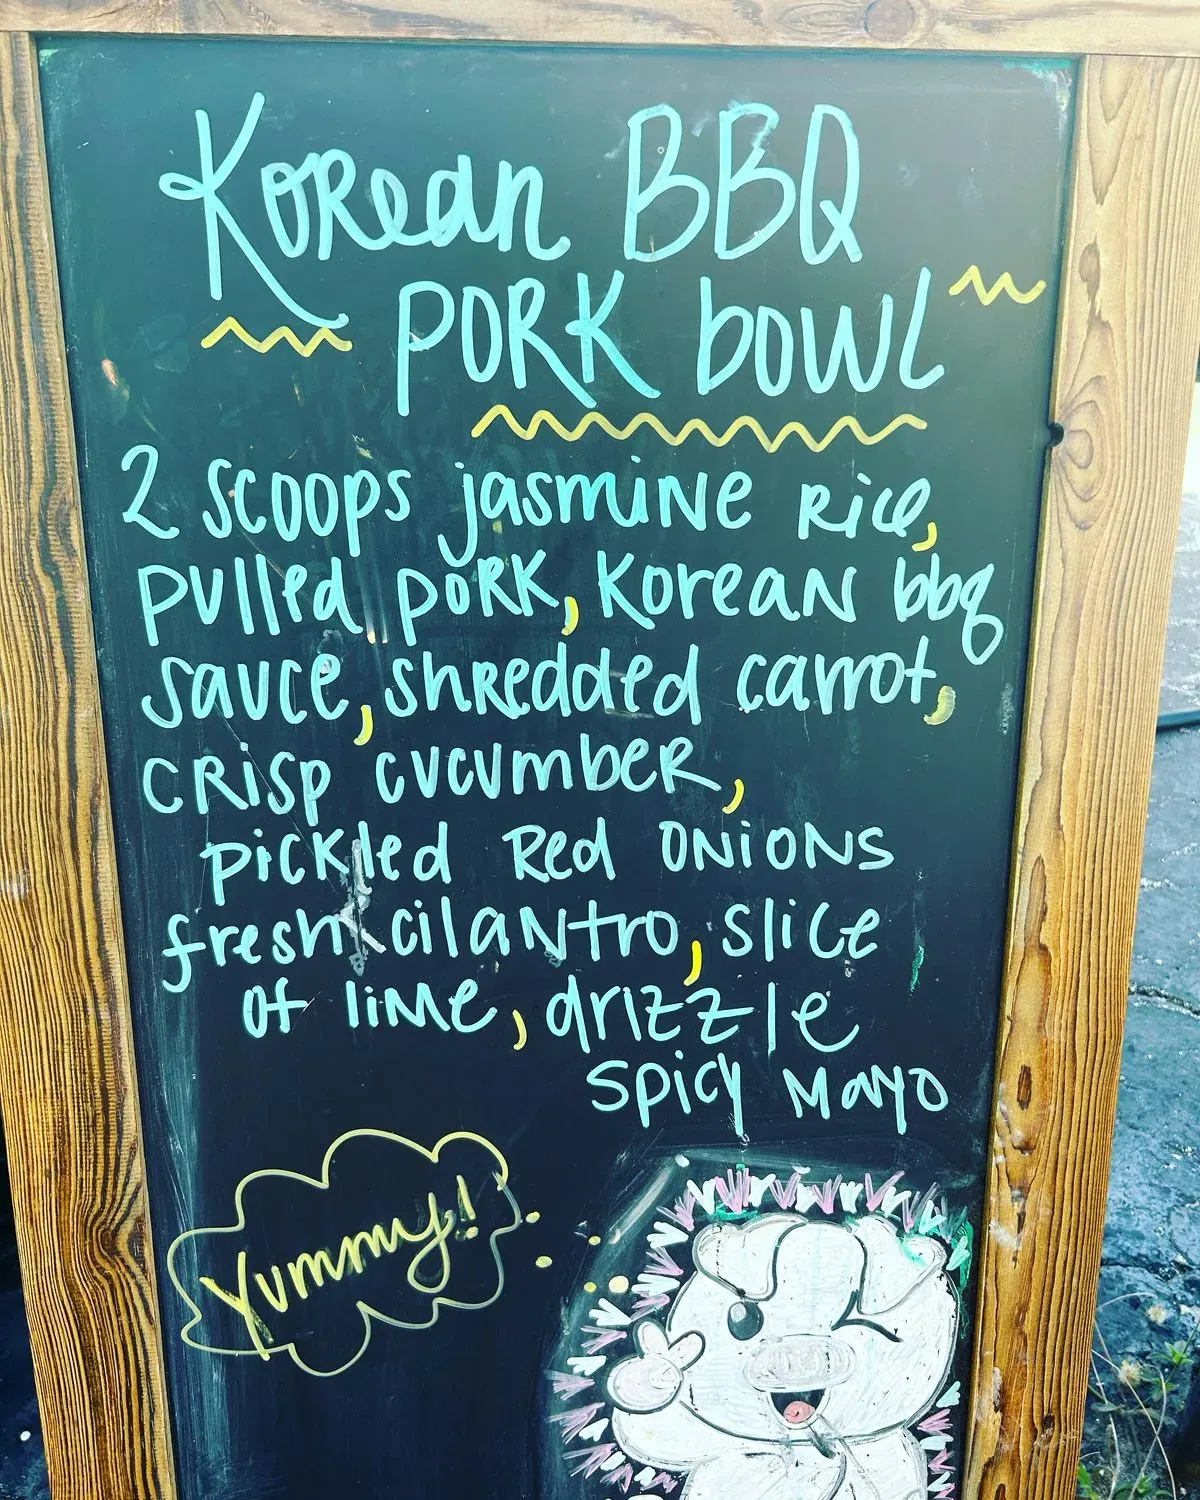 Korean BBQ
PORK bowl
2 scoops jasmine Rice,
pulled pork, Korean bbq
sauce, shredded carrot,
crisp cucumber,
pickled Red onions
fresh cilantro, slice
of lime, drizzle
spicy mayo
Yummy!